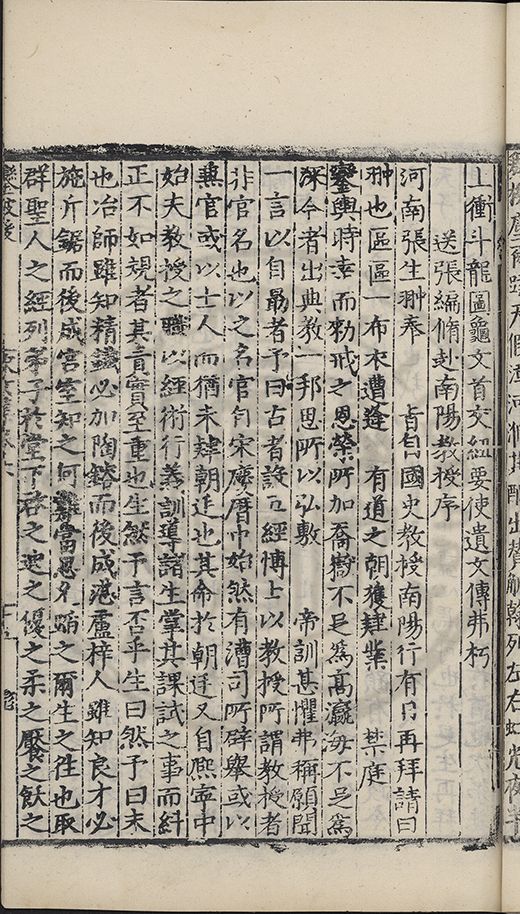 上衝斗龍圖龜文首交紐要使遺文傳弗朽
送張編脩赴南陽教授序
河南張生翀奉 旨自國史教授南陽行有日再拜請曰
翀也區區一布衣遭逢 有道之朝獲肄業 禁庭
鑾輿時幸而勑戒之恩榮所加喬嶽不足爲高瀛海不足爲
深今者出典教一邦思所以弘敷 帝訓甚懼弗稱願聞
一言以自勗者予曰古者設五經博士以教授所謂教授者
非官名也以之名官自宋慶曆中始然有漕司所辟舉或以
兼官或以士人而猶未隸朝廷也其命於朝廷又自熙寧中
始夫教授之職以經術行義訓導諸生掌其課試之事而糾
正不如規者其責實至重也生然予言否乎生曰然予曰未
也冶師雖知精鐵必加陶鎔而後成湛盧梓人雖知良才必
施斤鋸而後成宮室知之何難當思允蹈之爾生之徃也取
群聖人之經列弟子於堂下啓之迪之優之柔之饜之飫之